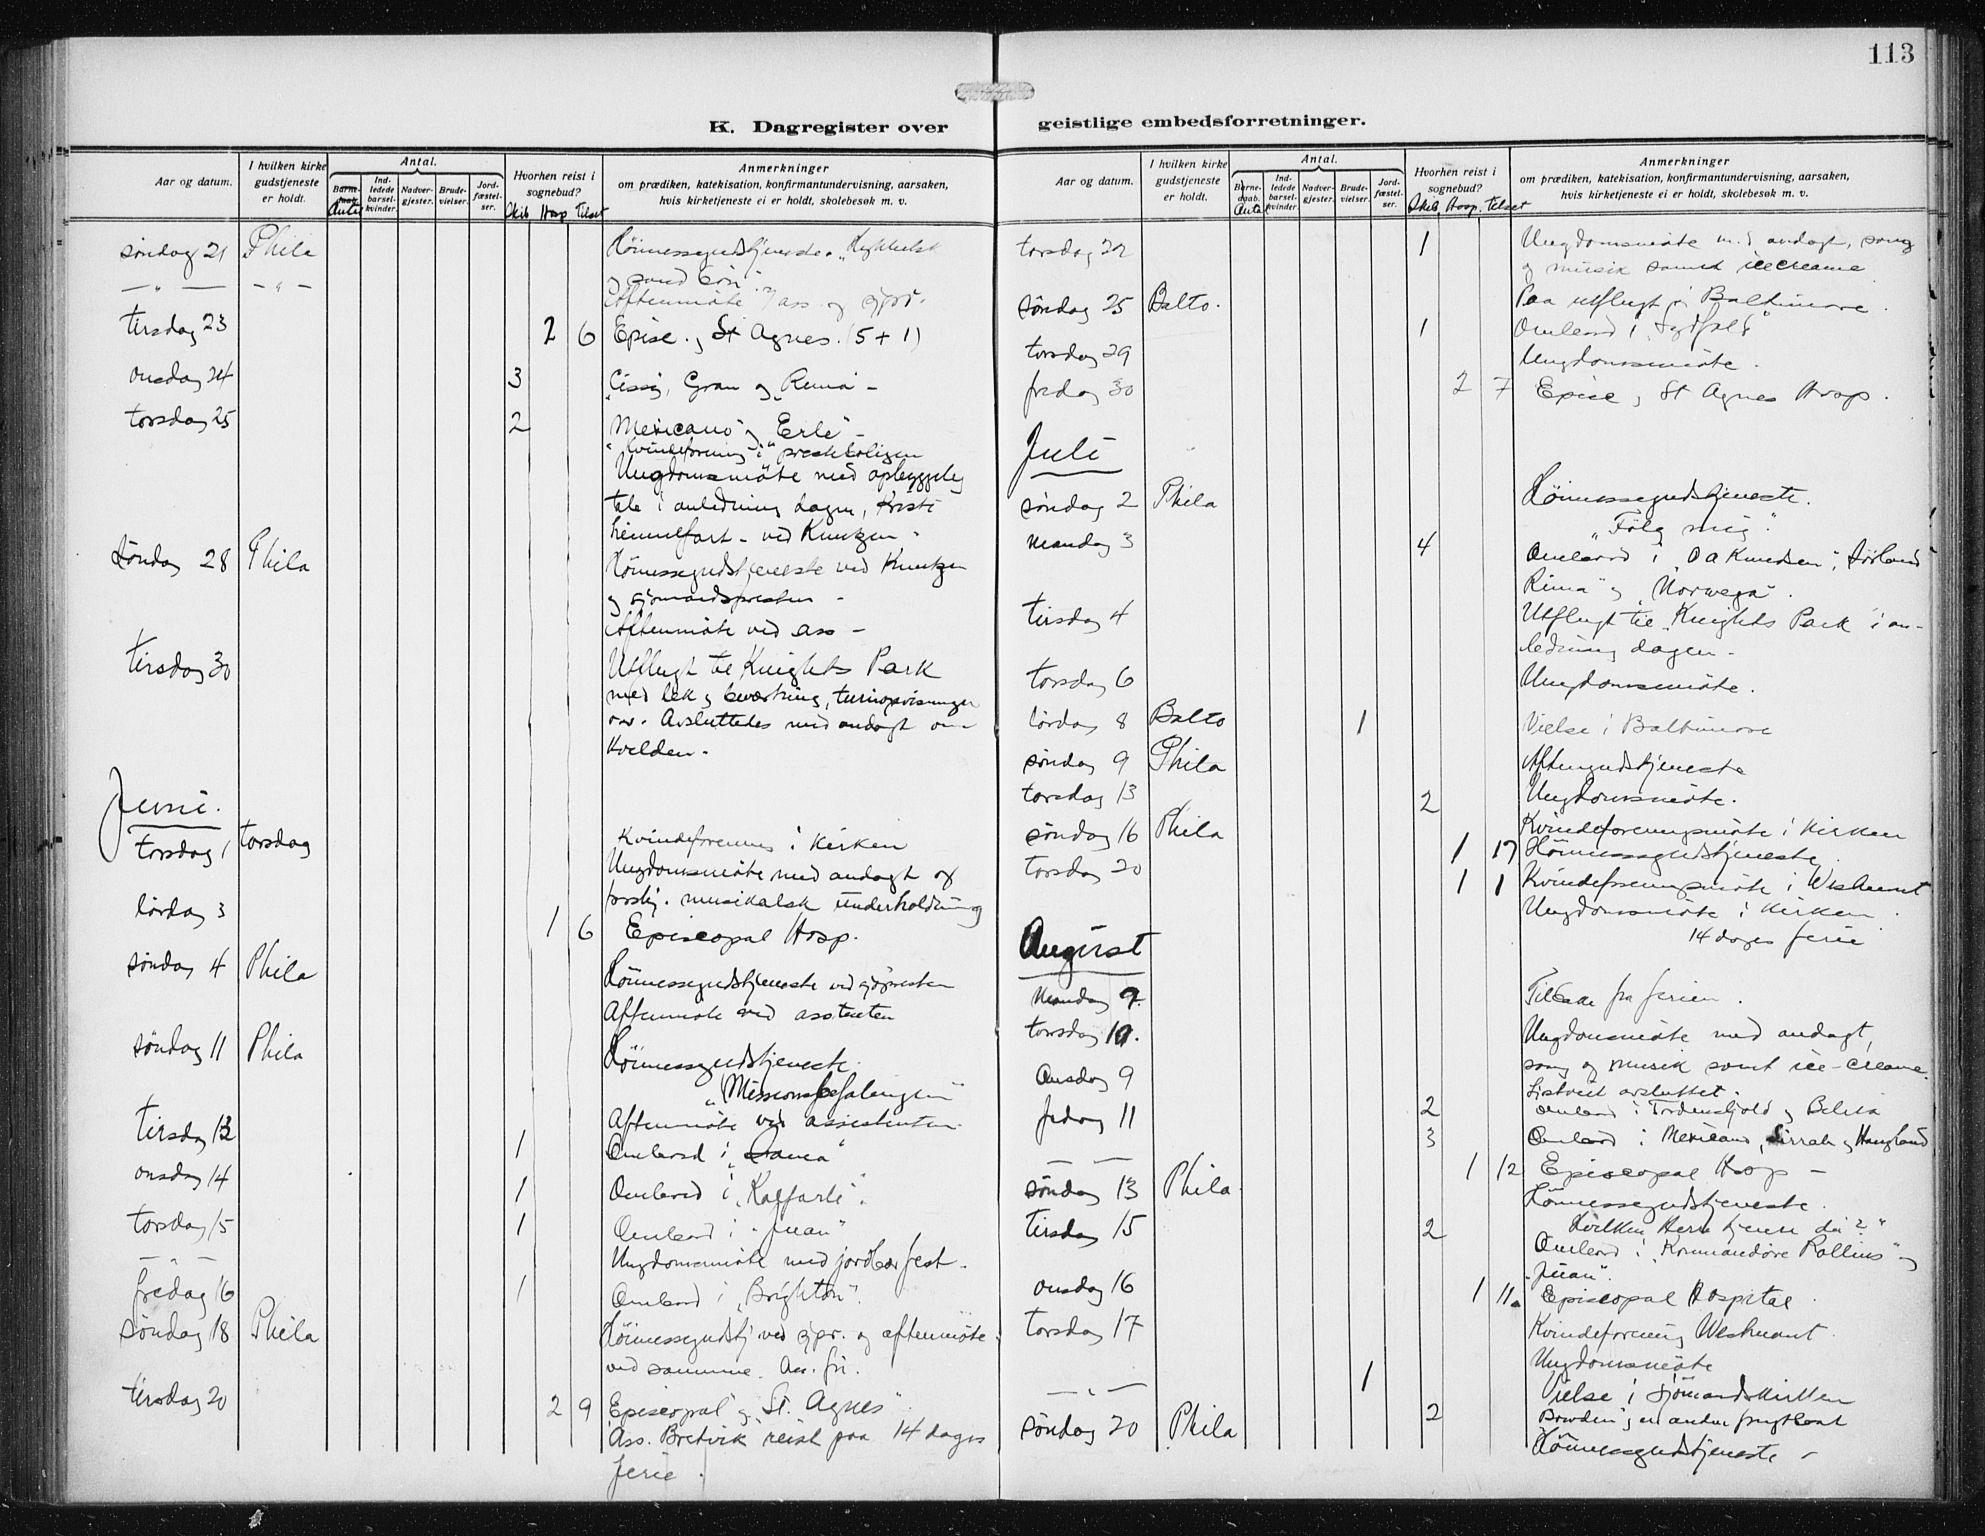 113
K. Dagregister over geistlige embedsforretninger.
Aar og datum.
I hvilken kirke gudstjeneste er holdt.
Antal.
Barne-
Antal
Ind-ledede barsel-kvinder.
Nadver-gjester.
Brude-vielser.
Jord-fæstel-ser.
Hvorhen reist i sognebud?
Skib Hosp Tilset
Anmerkninger
om prædiken, katekisation, konfirmantundervisning, aarsaken,
hvis kirketjeneste ei er holdt, skolebesøk m. v.
søndag 21 Phila Høimessegudstjeneste
— " — — " — Aftenmøte v/ ass. og sjpr.
tirsdag 23 2 6 Episc. og St Agnes. (5 + 1)
onsdag 24 3 Cissy, Gran og "Rima" –
torsdag 25 2 Mexicano og "Erle" –
Kvindeforening i presteboligen
Ungdomsmøte med opbyggelig
tale i anledning dagen, Kristi
himmelfart – ved Knutzen –
Søndag 28 Phila Høimessegudstjeneste ved Knutzen
og sjømandspresten –
Aftenmøte ved ass –
tirsdag 30 Utflugt til Knights Park
med lek og beværtning, turnopvisninger
osv. Avsluttedes med andagt om
kvelden.
Juni.
torsdag 1 torsdag Kvindeforening i kirken
Ungdomsmøte med andagt og
forskj. musikalsk underholdning
lørdag 3 1 6 Episcopal Hosp.
søndag 4 Phila Høimessegudstjeneste ved sjøpresten
Aftenmøte ved asstenten
søndag 11 Phila Høimessegudstjeneste.
"Missionsbefalingen"
Aftenmøte ved assistenten.
tirsdag 13 1 Ombord i
onsdag 14 1 Ombord i "Kalfarli".
torsdag 15 1 Ombord i "Juan"
— — Ungdomsmøte med jordbærfest.
fredag 16 1 Ombord i "Brighton".
søndag 18 Phila Høimessegudstj ved sjpr. og aftenmøte
ved samme. Ass. fri.
tirsdag 20 2 9 Episcopal og St. Agnes
Ass. Bretvik reist paa 14 dages
ferie.
Aar og datum.
I hvilken kirke gudstjeneste er holdt.
Antal.
Barne-daab.
Antal
Ind-ledede barsel-kvinder.
Nadver-gjester.
Brude-vielser.
Jord-fæstel-ser.
Hvorhen reist i sognebud?
Skib Hosp. Tilset
Anmerkninger
om prædiken, katekisation, konfirmantundervisning, aarsaken,
hvis kirketjeneste ei er holdt, skolebesøk m. v.
torsdag 22 1 Ungdomsmøte med andagt, sang
og musik samt icecreame
søndag 25 Balto. Paa utflugt i Baltimore.
1 Ombord i "Sydfold"
torsdag 29 Ungdomsmøte.
fredag 30 2 7 Episc og St Agnes Hosp.
Juli
søndag 2 Phila Høimessegudstjeneste.
"Følg mig".
mandag 3 4 Ombord i "O A Knudsen", Sørland
Rima" og "Norwega".
tirsdag 4 Utflugt til Knights Park i an-
ledning dagen –
torsdag 6 Ungdomsmøte.
lørdag 8 Balto 1 Vielse i Baltimore
søndag 9 Phila Aftengudstjeneste
torsdag 13 2 Ungdomsmøte.
Kvindeforeningsmøte i kirken
søndag 16 Phila 1 17 Høimessegudstjeneste.
torsdag 20 1 1 Kvindeforeningsmøte i Westmont
Ungdomsmøte i kirken.
14 dages ferie
August
mandag 7. Tilbake fra ferien.
torsdag 10. Ungdomsmøte med andagt,
sang og musik samt ice-creame.
Onsdag 9 Listveit avsluttet.
fredag 11 2 Ombord i Tordenskjold og Belita
3 Ombord i Mexicano, Sirrah og Haugland
— — 1 12 Episcopal Hosp –
søndag 13 Phila. Høimessegudstjeneste.
"Hvilken Herre tjener du?"
tirsdag 15 2 Ombord i "Kommandøre Rollins" og
"Juan".
onsdag 16 1 11 Episcopal Hospital.
torsdag 17 Kvindeforening Westmont.
Ungdomsmøte
— " — 1 Vielse i Sjømandskirken
2
søndag 20 Phila Høimessegudstjeneste –